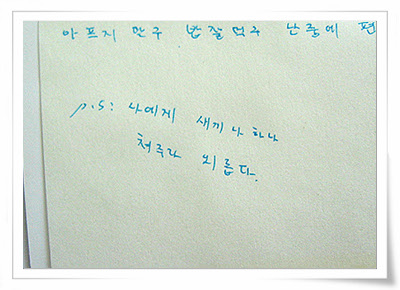 아프지 만구 밥 잘 먹구 난중에 편
p.s: 나에게 새끼나 하나
쳐주라 외롭다.